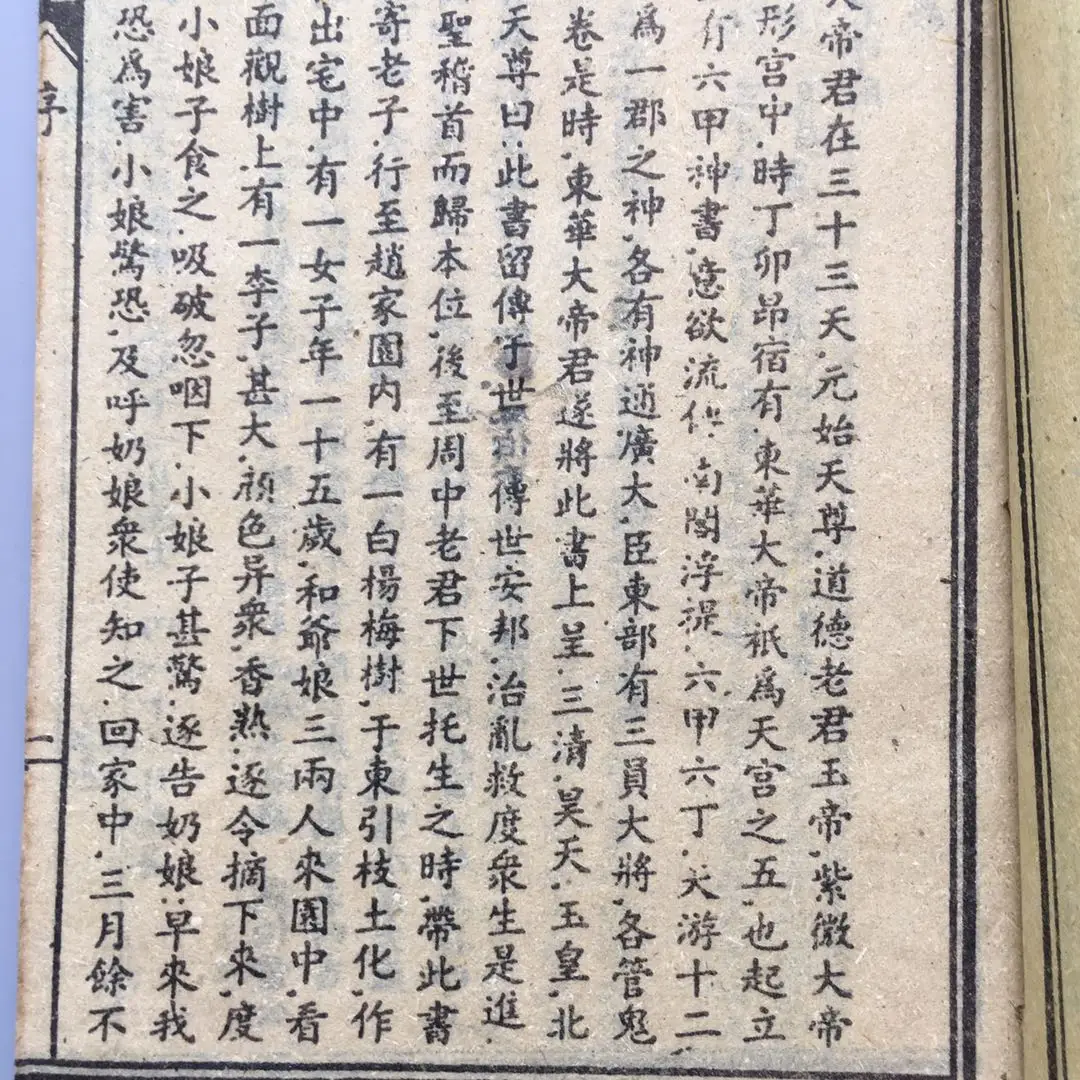 帝君在三十三天.元始天尊.道德老君玉帝.紫微大帝
形宮中.時丁卯昴宿有.東華大帝祇爲天宮之五也起立
六甲神書.意欲流供.南閻浮提.六甲六丁.天游十二
爲一郡之神.各有神通廣大.臣東部有三員大將.各管鬼
卷是時.東華大帝君遂將此書上呈.三清.昊天.玉皇.北
天尊曰.此書留傳于世傳世安邦.治亂救度衆生是進
聖稽首而歸本位.後至周中老君下世托生之時.帶此書
寄老子.行至趙家園内.有一白楊梅樹.于東引枝土化.作
出宅中.有一女子年一十五歲.和爺娘三兩人來園中.看
面觀樹上有一李子.甚大.顔色异衆.香熟.逐令摘下來.度
小娘子食之.吸破忽咽下.小娘子甚驚.逐告奶娘.早來我
恐爲害.小娘驚恐.及呼奶娘衆使知之.回家中.三月餘不
序
二